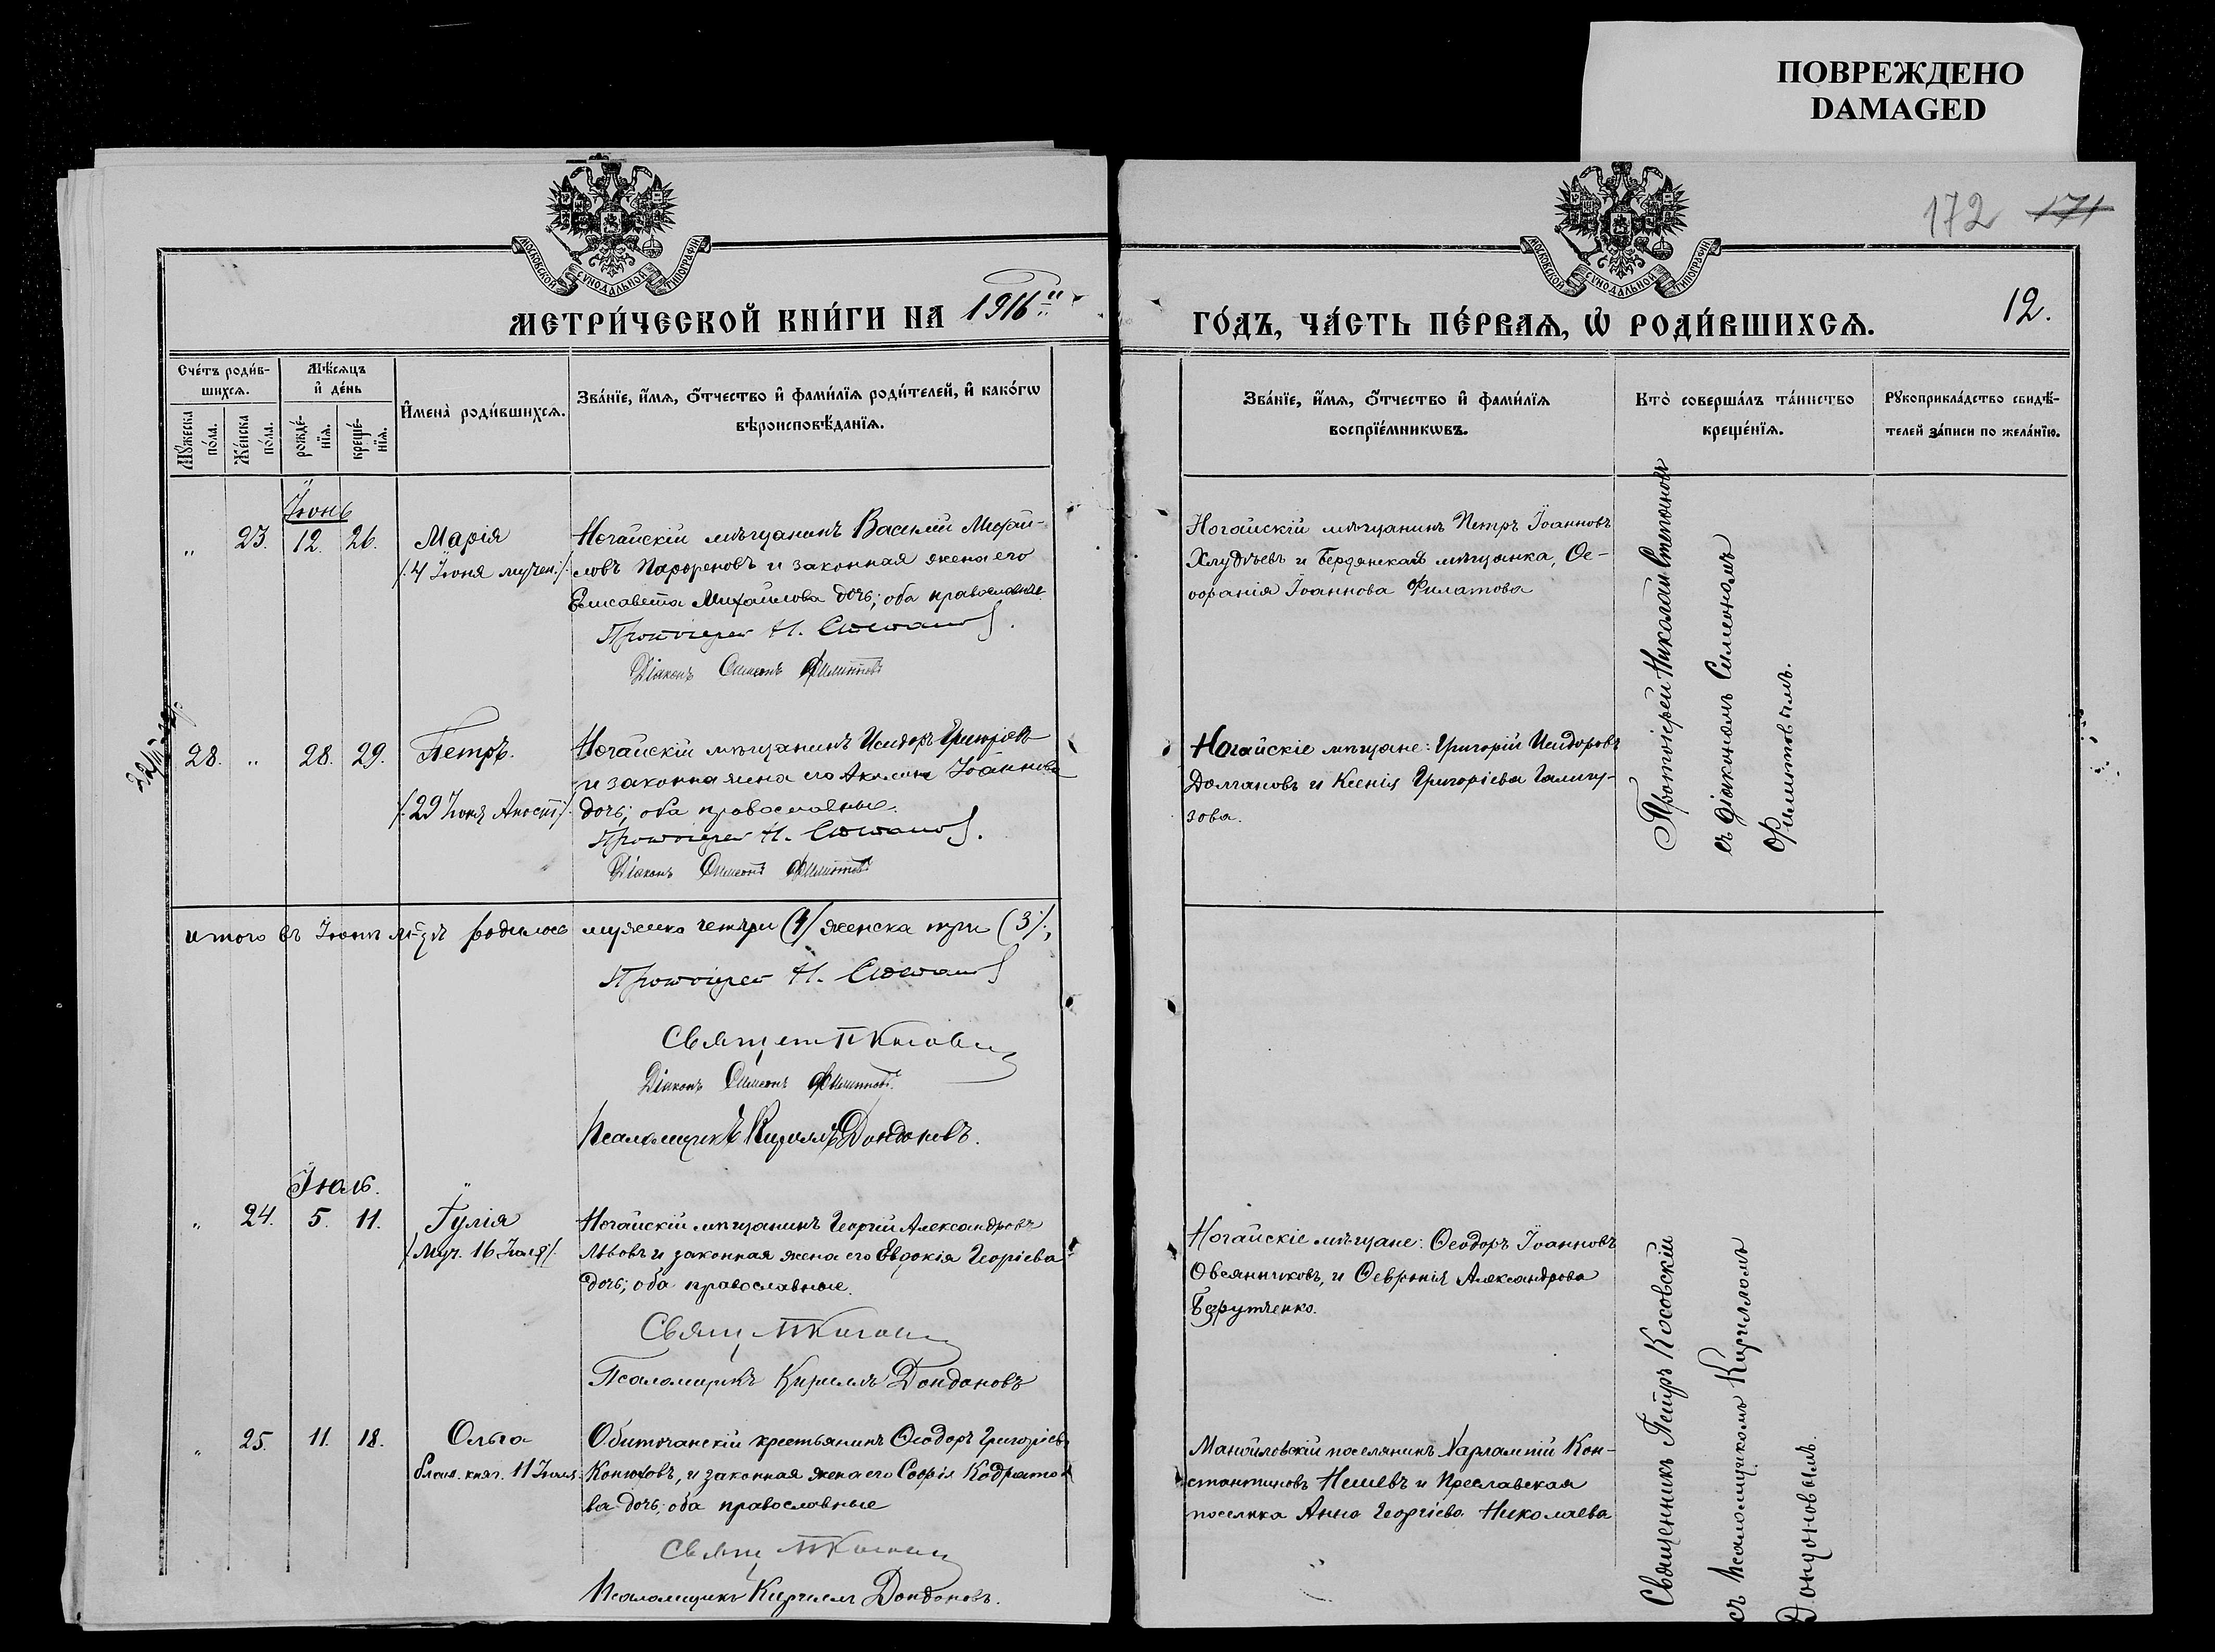 ПОВРЕЖДЕНО
DAMAGED
172 171
12.
МОСКОВСКОЙ СѴНОДАЛЬНОЙ ТИПОГРАФІИ
МОСКОВСКОЙ СѴНОДАЛЬНОЙ ТИПОГРАФІИ
МЕТРИ́ЧЕСКОЙ КНИ́ГИ НА 1916й
ГО́ДЪ, ЧА́СТЬ ПЕ́РВАЯ, Ѡ РОДИ́ВШИХСѦ.
Сче́тъ роди́в-
шихсѧ.
Мꙋ́жеска
по́ла.
Же́нска
по́ла.
Мѣ́сѧцъ
и҆ де́нь
рожде́-
нїѧ.
креще́-
нїѧ.
И҆мена̀ роди́вшихсѧ.
Зва́нїе, и҆́мѧ, ѻ҆́тчество и҆ фами́лїѧ роди́телей, и҆ како́гѡ
вѣроисповѣ́данїѧ.
Зва́нїе, и҆́мѧ, ѻ҆́тчество и҆ фами́лїѧ
воспрїе́мникѡвъ.
Кто̀ соверша́лъ та́инство
креще́нїѧ.
Рꙋкоприкла́дство свидѣ́-
телей за́писи по жела́нїю.
Іюнь
" 23. 12. 26. Марія
/. 4 Іюня мучен. /.
Ногайскій мѣщанинъ Василій Михай-
ловъ Парфеновъ и законная жена его
Елисавета Михайлова дочь; оба православные
Протоіерей Н. Степановъ.
Діаконъ Симеонъ Филиповъ
Ногайскій мѣщанинъ Петръ Іоанновъ
Хлудѣевъ и Бердянская мѣщанка, Ѳе-
офанія Іоаннова Филатова
Протоіерей Николай Степановъ
съ діакономъ Симеономъ
Филиповымъ.
28. " 28. 29. Петръ.
/. 29 Іюня Апост. /.
Ногайскій мѣщанинъ Исидоръ Григорьевъ
и законна жена его Акилина Іоаннова
дочь; оба православные.
Протоіерей Н. Степановъ.
Діаконъ Симеонъ Филиповъ
Ногайскіе мѣщане: Григорій Исидоровъ
Долгановъ и Ксенія Григоріева Галигу-
зова.
итого въ Іюнѣ м-цѣ родилось мужеска четыри (4) женска три (3).
Протоіерей Н. Степановъ
Діаконъ Симеонъ Филиповъ.
Псаломщикъ Кириллъ Дондоновъ.
Іюль.
" 24. 5. 11. Іулія
/Муч. 16 Іюля/.
Ногайскій мѣщанинъ Георгій Александровъ
Львовъ и законная жена его Евдокія Георгіева
дочь; оба православные.
Псаломщикъ Кириллъ Дондоновъ
Ногайскіе мѣщане: Ѳеодоръ Іоанновъ
Овсянниковъ, и Ѳевронія Александрова
Священникъ Петръ Косовскій
съ псаломщикомъ Кирилломъ
Дондоновымъ.
" 25. 11. 18. Ольга
благ. княг. 11 Іюля.
Обиточанскій крестьянинъ Ѳеодоръ Григоріевъ
Конюховъ, и законная жена его Софія Кодрато-
ва дочь; оба православные
Псаломщикъ Кириллъ Дондоновъ.
Манойловскій поселянинъ Харлампій Кон-
стантиновъ Нешевъ и Преславская
поселянка Анна Георгіева Николаева